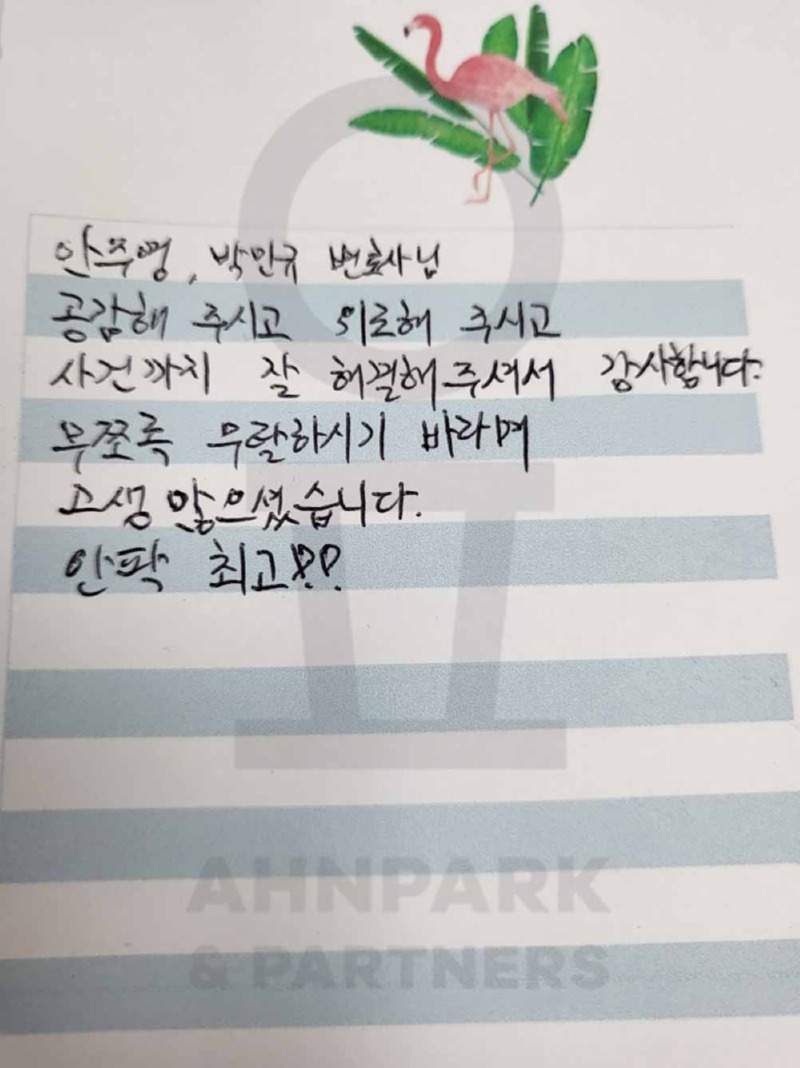 안주영, 박민규 변호사님
공감해 주시고 위로해 주시고
사건까지 잘 해결해주셔서 감사합니다.
부쪼록 무탈하시기 바라며
고생 많으셨습니다.
안팍 최고!!
AHNPARK
& PARTNERS